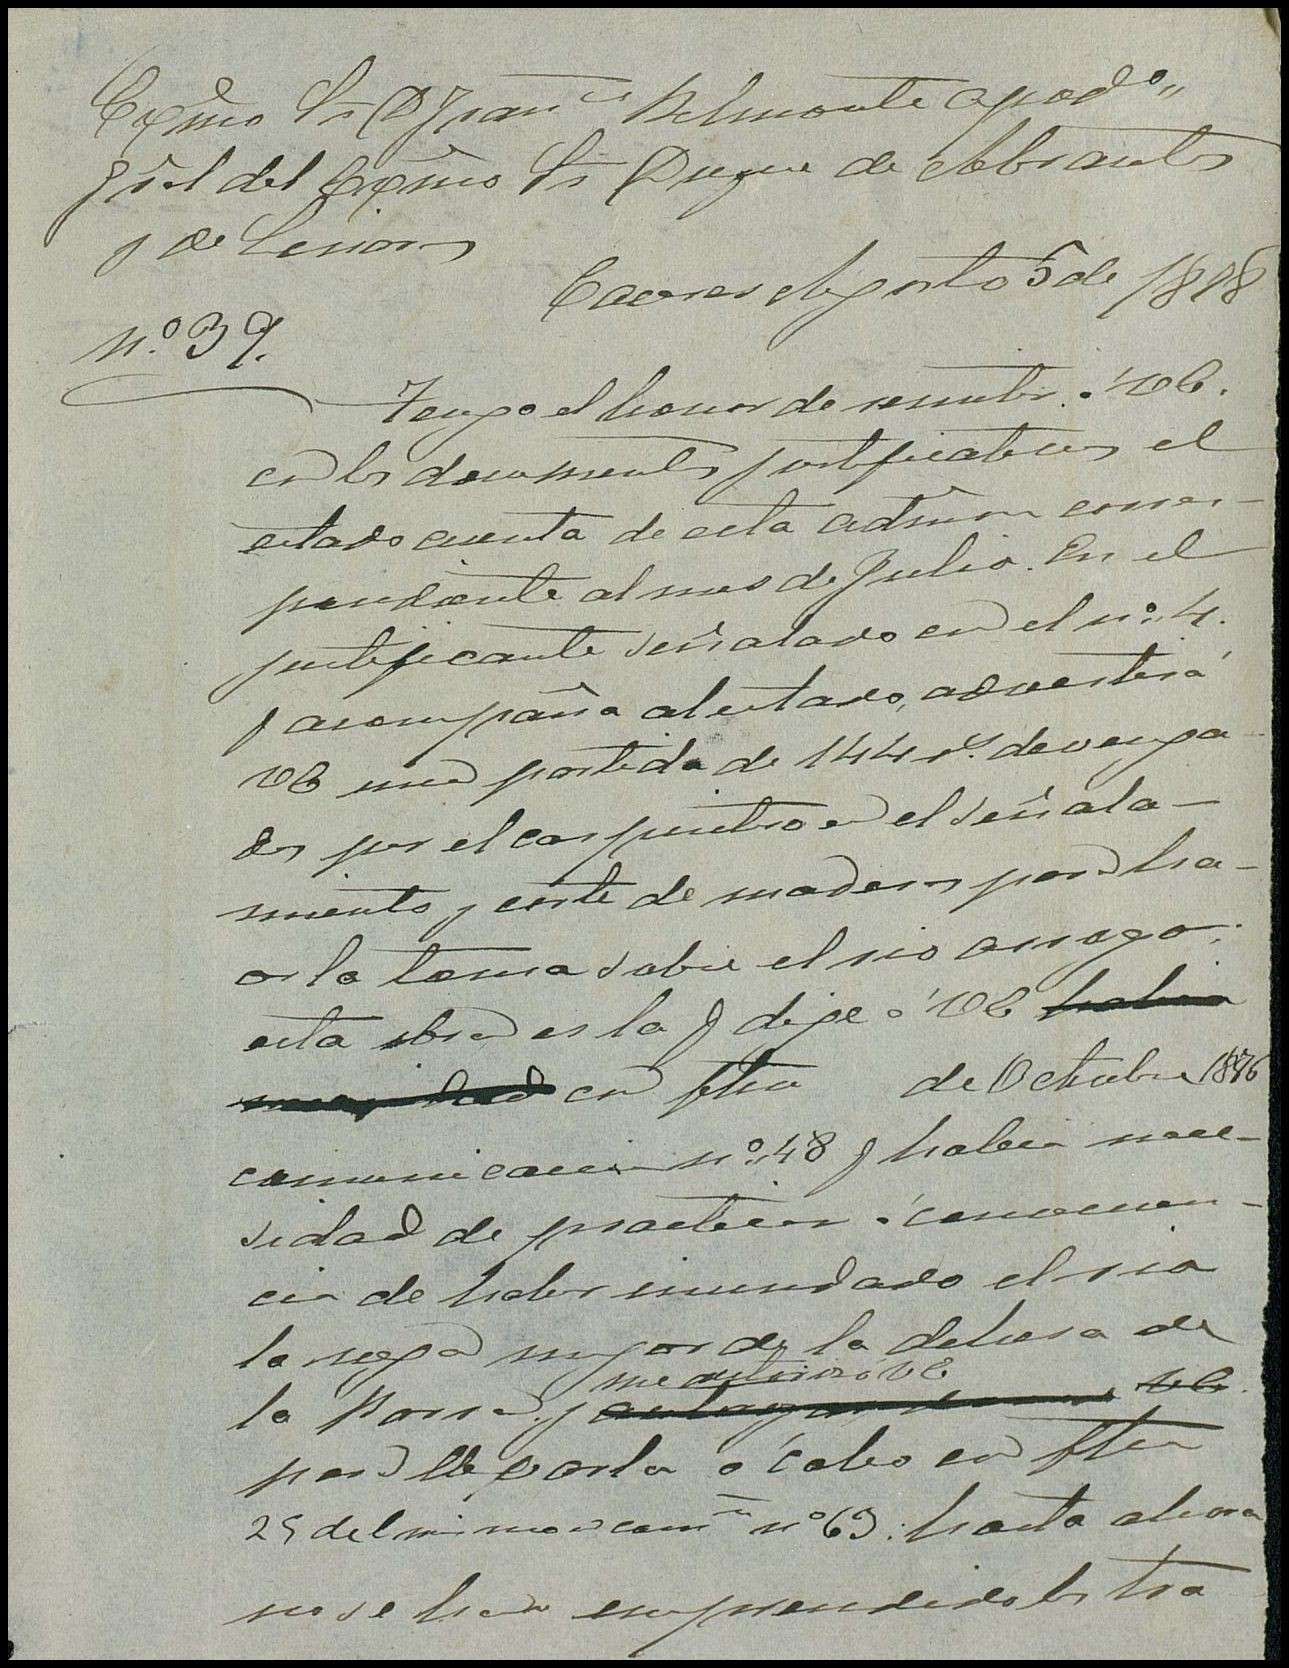 Exc͂mo Sr D Fran.co Belmonte apod.o
gr͂al del Exc͂mo Sr Duque de Abrantes
y de Linares
Caceres Agosto 5 de 1878
n.o 39.
Tengo el honor de remitir á VE.
con los documentos justificativos el
estado cuenta de esta admon corres-
pondiente al mes de Julio. En el
justificante señalado con el n.o 4.
q acompaña al estado, advertirá
VE una partida de 144 r.s devenga-
dos por el carpintero en el señala-
miento y corte de maderas para ha-
cer la toma sobre el rio
esta obra es la q dije á VE habia
en fha de Octubre 1876
comunicacion n.o 48 q habia nece-
sidad de practicar á consecuen-
cia de haber inundado el rio
la vega mejor de la dehesa de
me autorizó VE
la y VE
para llevarla á cabo en fha
25 del mismo com.on n.o 69: hasta ahora
no se han emprendido los tra